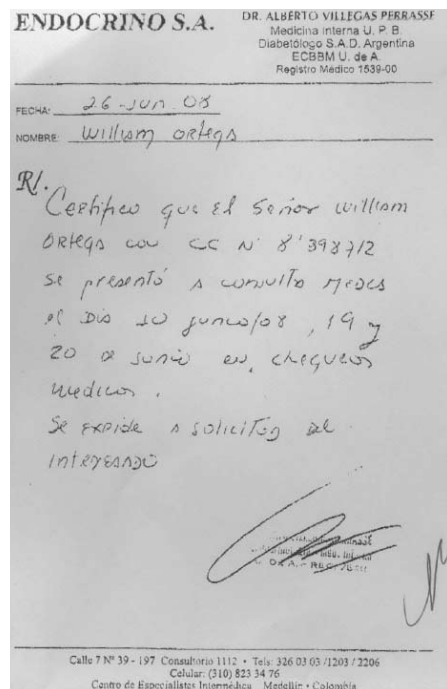 ENDOCRINO S.A.
DR. ALBERTO VILLEGAS PERRASSE
Medicina Interna U. P. B.
Diabetólogo S.A.D. Argentina
ECBBM U. de A.
Registro Médico 1539-00
FECHA: 26-Jun. 08
NOMBRE: William Ortega
R/.
Certifico que el Señor William
Ortega con CC Nº 8'398712
se presentó a consulta
el Dia 10 junio/08, 19 y
20 de junio en chequeos
medicos.
Se expide a solicitud del
interesado
Calle 7 Nº 39 - 197 Consultorio 1112 • Tels: 326 03 03 /1203 / 2206
Celular: (310) 823 34 76
Centro de Especialistas Intermédica Medellín • Colombia